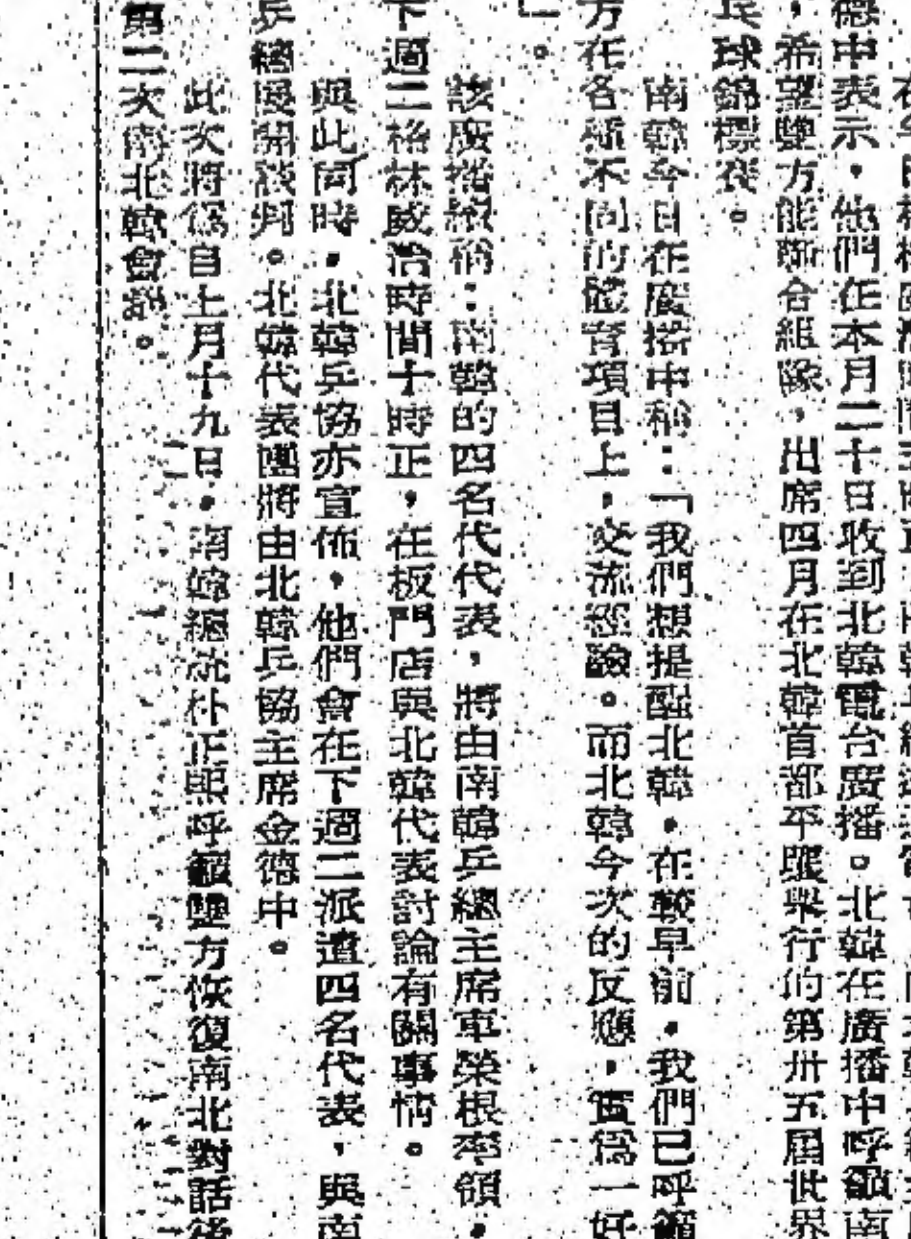 德中表示,他們在本月二十日收到北韓電台廣播。北韓在廣播中呼籲南
,希望雙方能聯合組隊,出席四月在北韓首都平壤舉行的第卅五屆世界
乓球錦標賽。
南韓今日在廣播中稱:「我們想提醒北韓,在較早前,我們已呼籲
方在各種不同的體育項目上,交流經驗。而北韓今次的反應,實為一好
」。
該廣播續稱:南韓的四名代代表,將由南韓乒總主席車榮根率領,
下週二格林威治時間十時正,在板門店與北韓代表討論有關事情。
與此同時,北韓乒協亦宣佈,他們會在下週二派遣四名代表,與南
乒總展開談判。北韓代表團將由北韓乒協主席金德中。
此次將係自上月十九日,南韓總統朴正熙呼籲雙方恢復南北對話後
第二次南北韓會談。